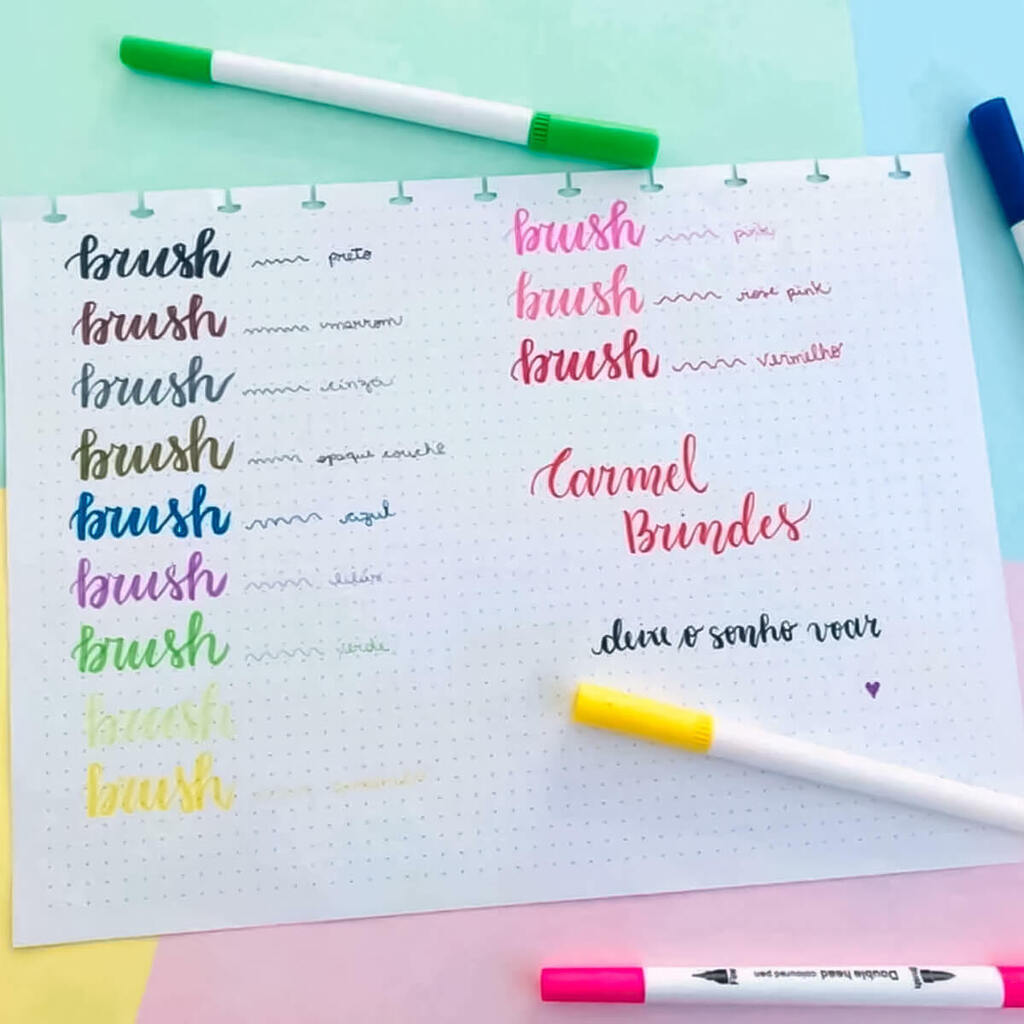 brush preto
brush marrom
brush cinza
brush opaque couchê
brush azul
brush lilás
brush verde
brush
brush
brush pink
brush rose pink
brush vermelho
Carmel
Brindes
deixe o sonho voar
Double head
coloured pen
brush